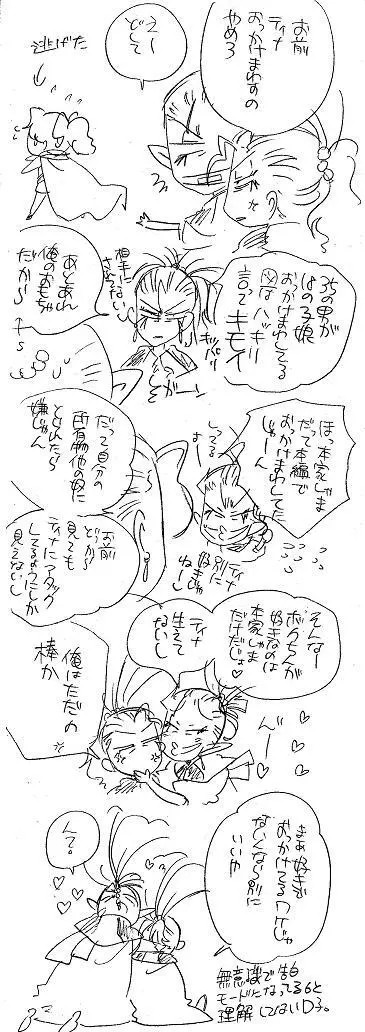 お前
ティナ
おっかけまわすの
やめろ
えー
どして
逃げた
35の男が
18の子娘
おっかけまわしてる
図はハッキリ
言ってキモイ
キッパリ
がーん
相手にない
されてない
あとあれ
俺のおもちゃ
だから
ほっ本家しま
だって本編で
おっかけまわして
じゃーん
してるよー
別にティナ
好きに
ねーし
だって自分の
所有物他の奴に
とられたら
嫌じゃん
お前
どっから
見ても
ティナにアタック
してるようにしか
見えないし
そんなー
ボクちんが
好きなのは
本家しま
だけだじょ♥
ティナ
生えて
ないし
俺はただの
棒か
んー
まあ好きで
おっかけてるワケじゃ
ないんなら別に
いいや
んで。
無意識で告白
モードになってると
理解してないD子。